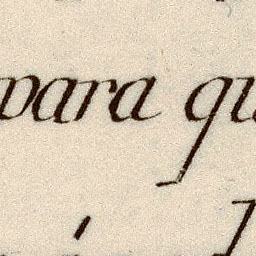 para qu